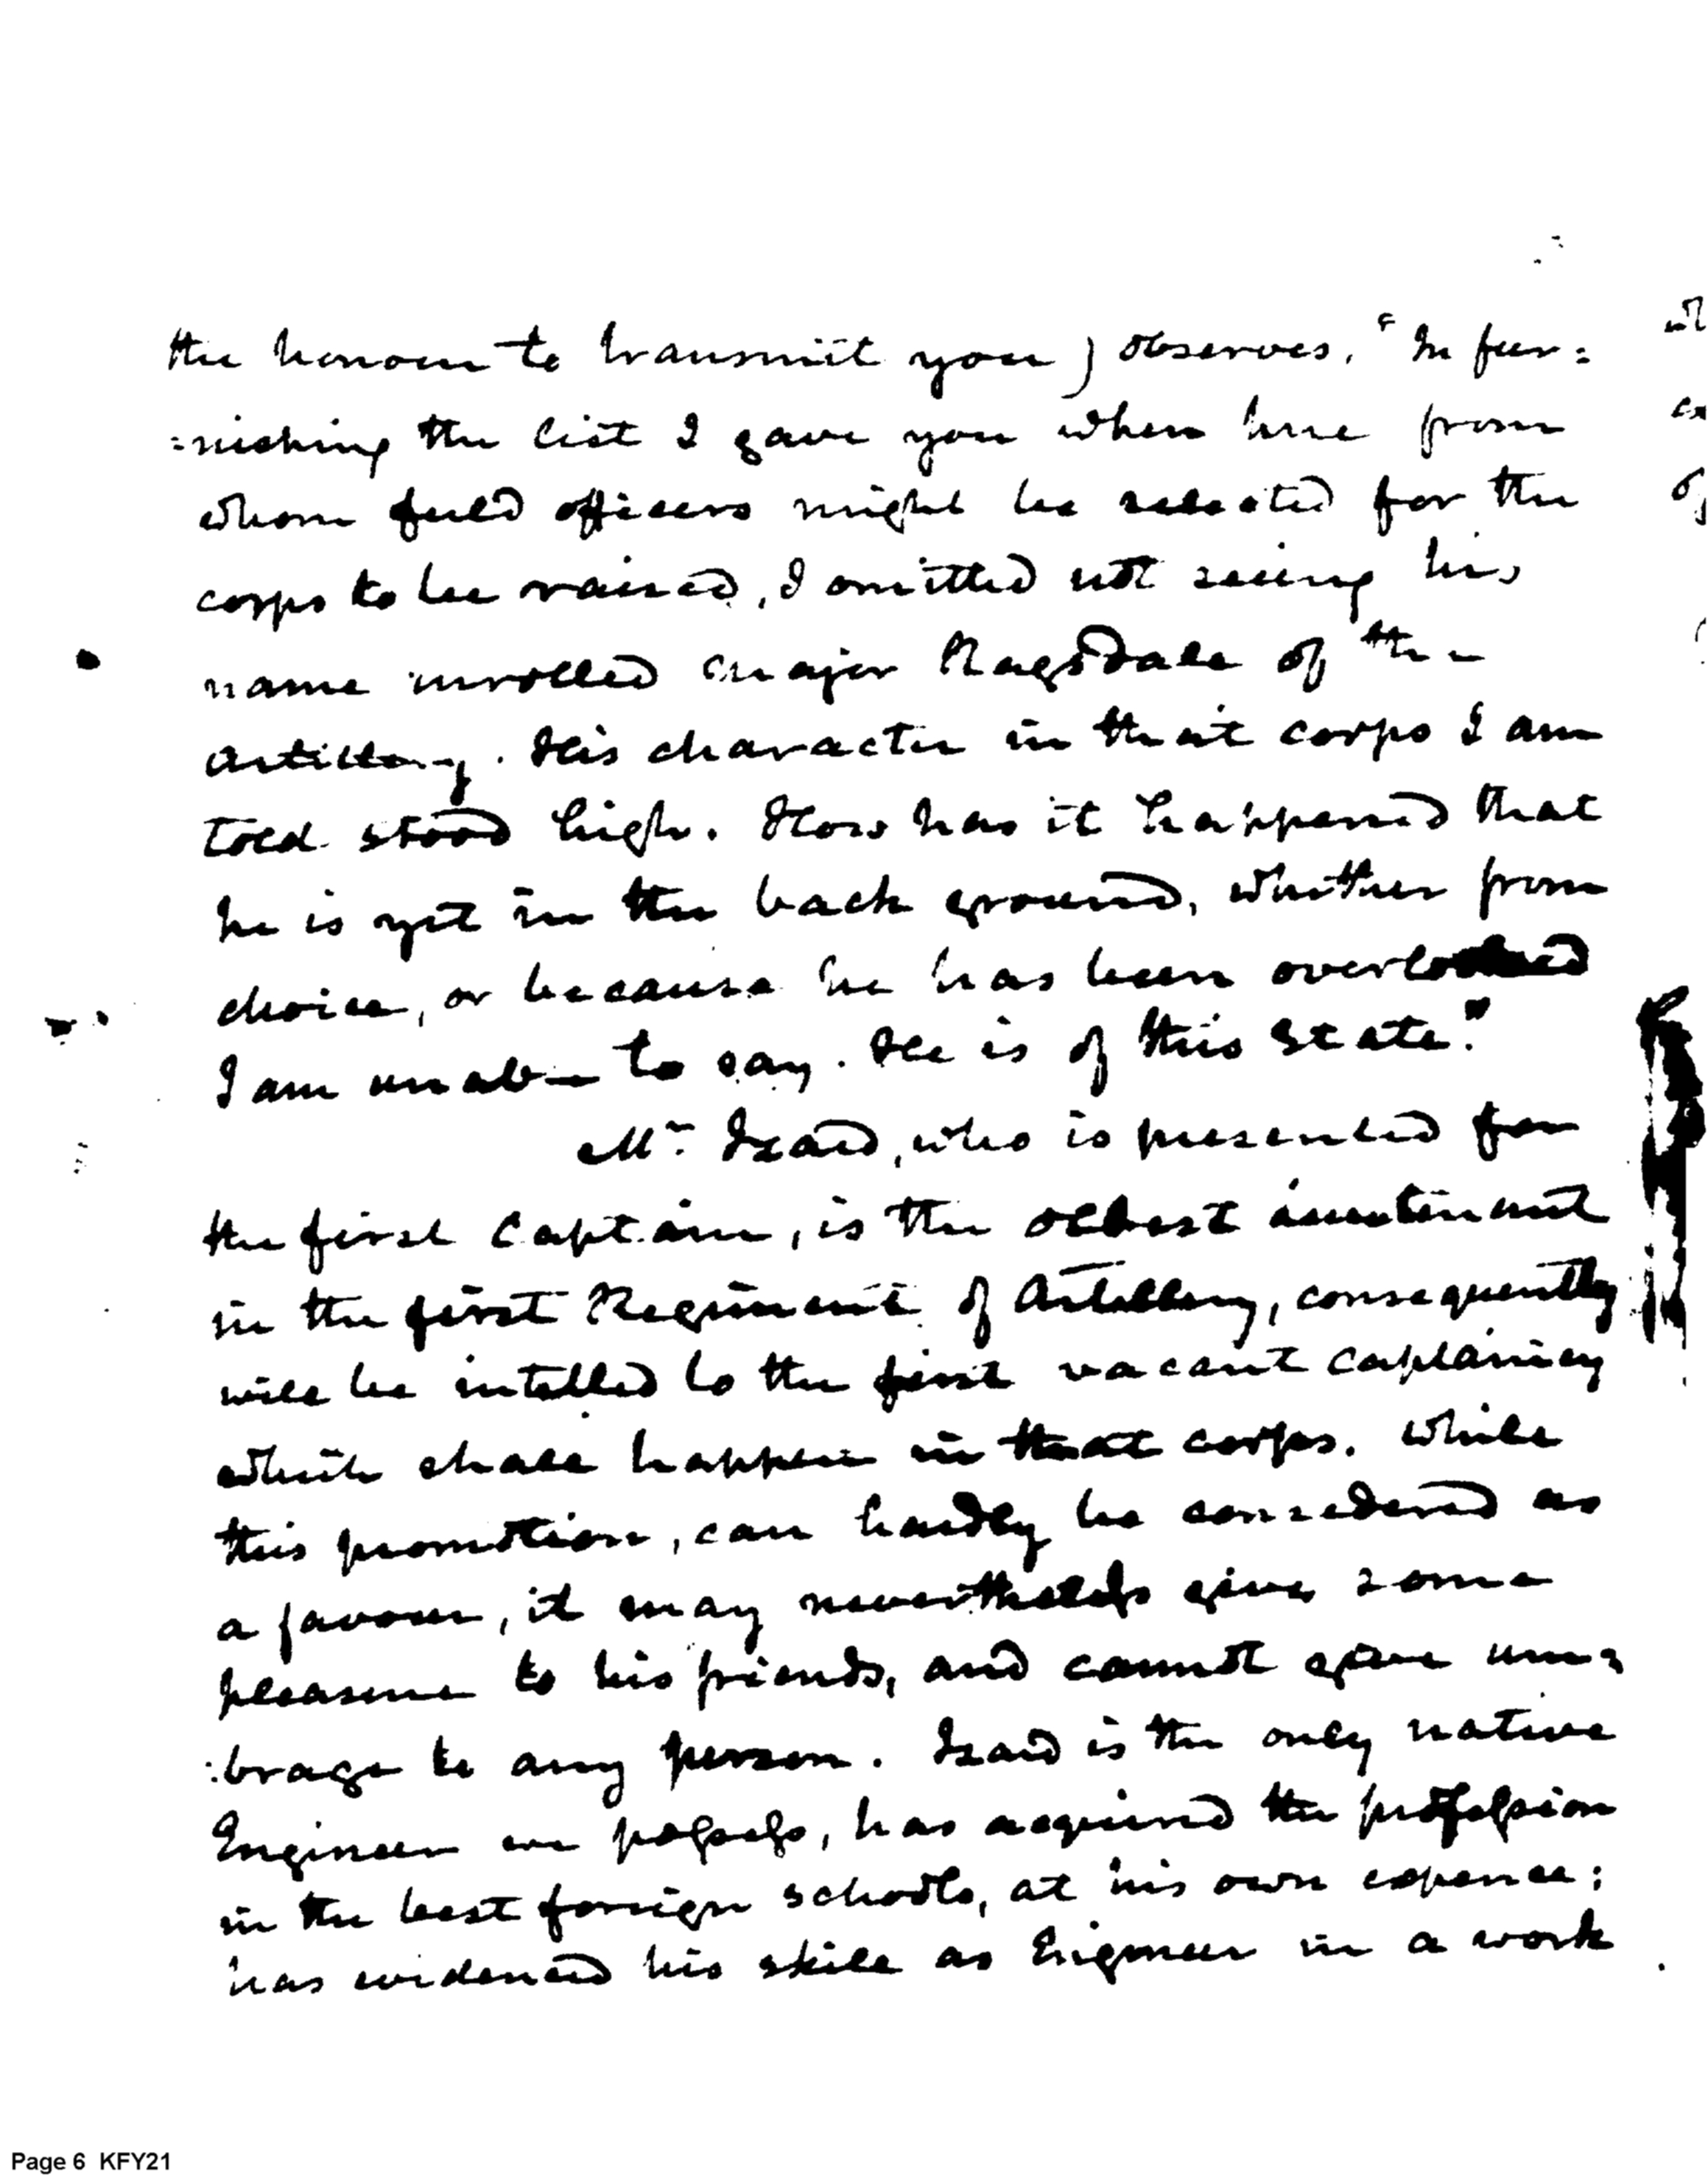 the honour to transmit you) observes. "In fur=
=nishing the list I gave you when here from
whom field officers might be selected for the
corps to be raised, I omitted not seeing his
name inrolled Major Ragsdale of the
Artillery. His character in that corps I am
told stood high. How has it happened that
he is yet in the back ground, whether from
choice, or because he has been overlooked
I am unable to say. He is of this State."
Mr. Izard, who is presented for
the first Captain, is the oldest lieutenant
in the first Regiment of Artillery, consequently
will be intitled to the first vacant captaincy
which shall happen in that corps. While
this promotion, can hardly be considered as
a favour, it may nevertheless give some
pleasure to his friends, and cannot give um=
:brage to any person. Izard is the only native
Engineer we possess, has acquired the profession
in the best foreign schools, at his own expence;
has evidenced his skill as Engineer in a work
Page 6 KFY21